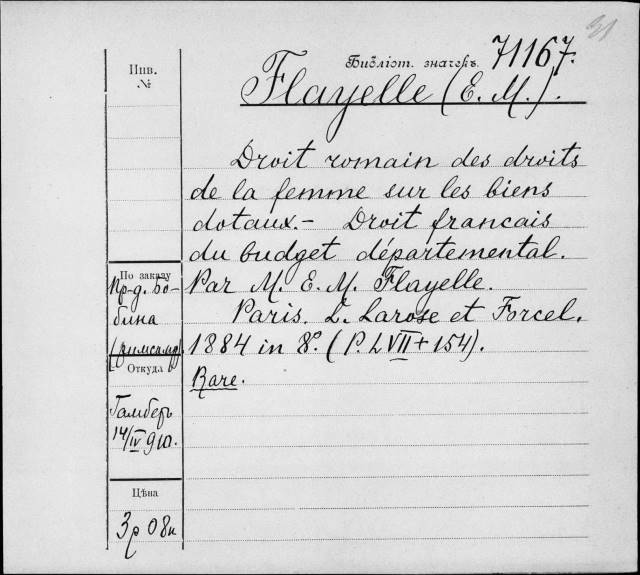 31
Библіот. значекъ 71167.
Инв.
№
Flayelle (E. M.).
Droit romain des droits
de la femme sur les biens
dotaux. – Droit francais
du budget départemental.
Par M. E. M. Flayelle.
Paris. L. Larose et Forcel.
1884 in 8º. (P. LVII + 154).
Rare.
По заказу
Пр-д. Бо-
бина
Откуда
Гамберъ
14/IV 910.
Цѣна
3р 08к